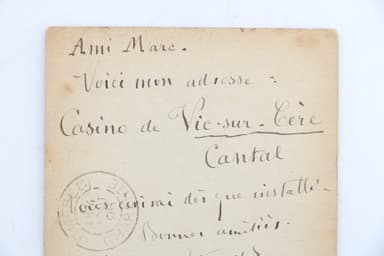 Ami Marc.
Voici mon adresse :
Casino de Vic-sur-Cère
Cantal
Vous écrirai dès que installé.
Bonnes amitiés.